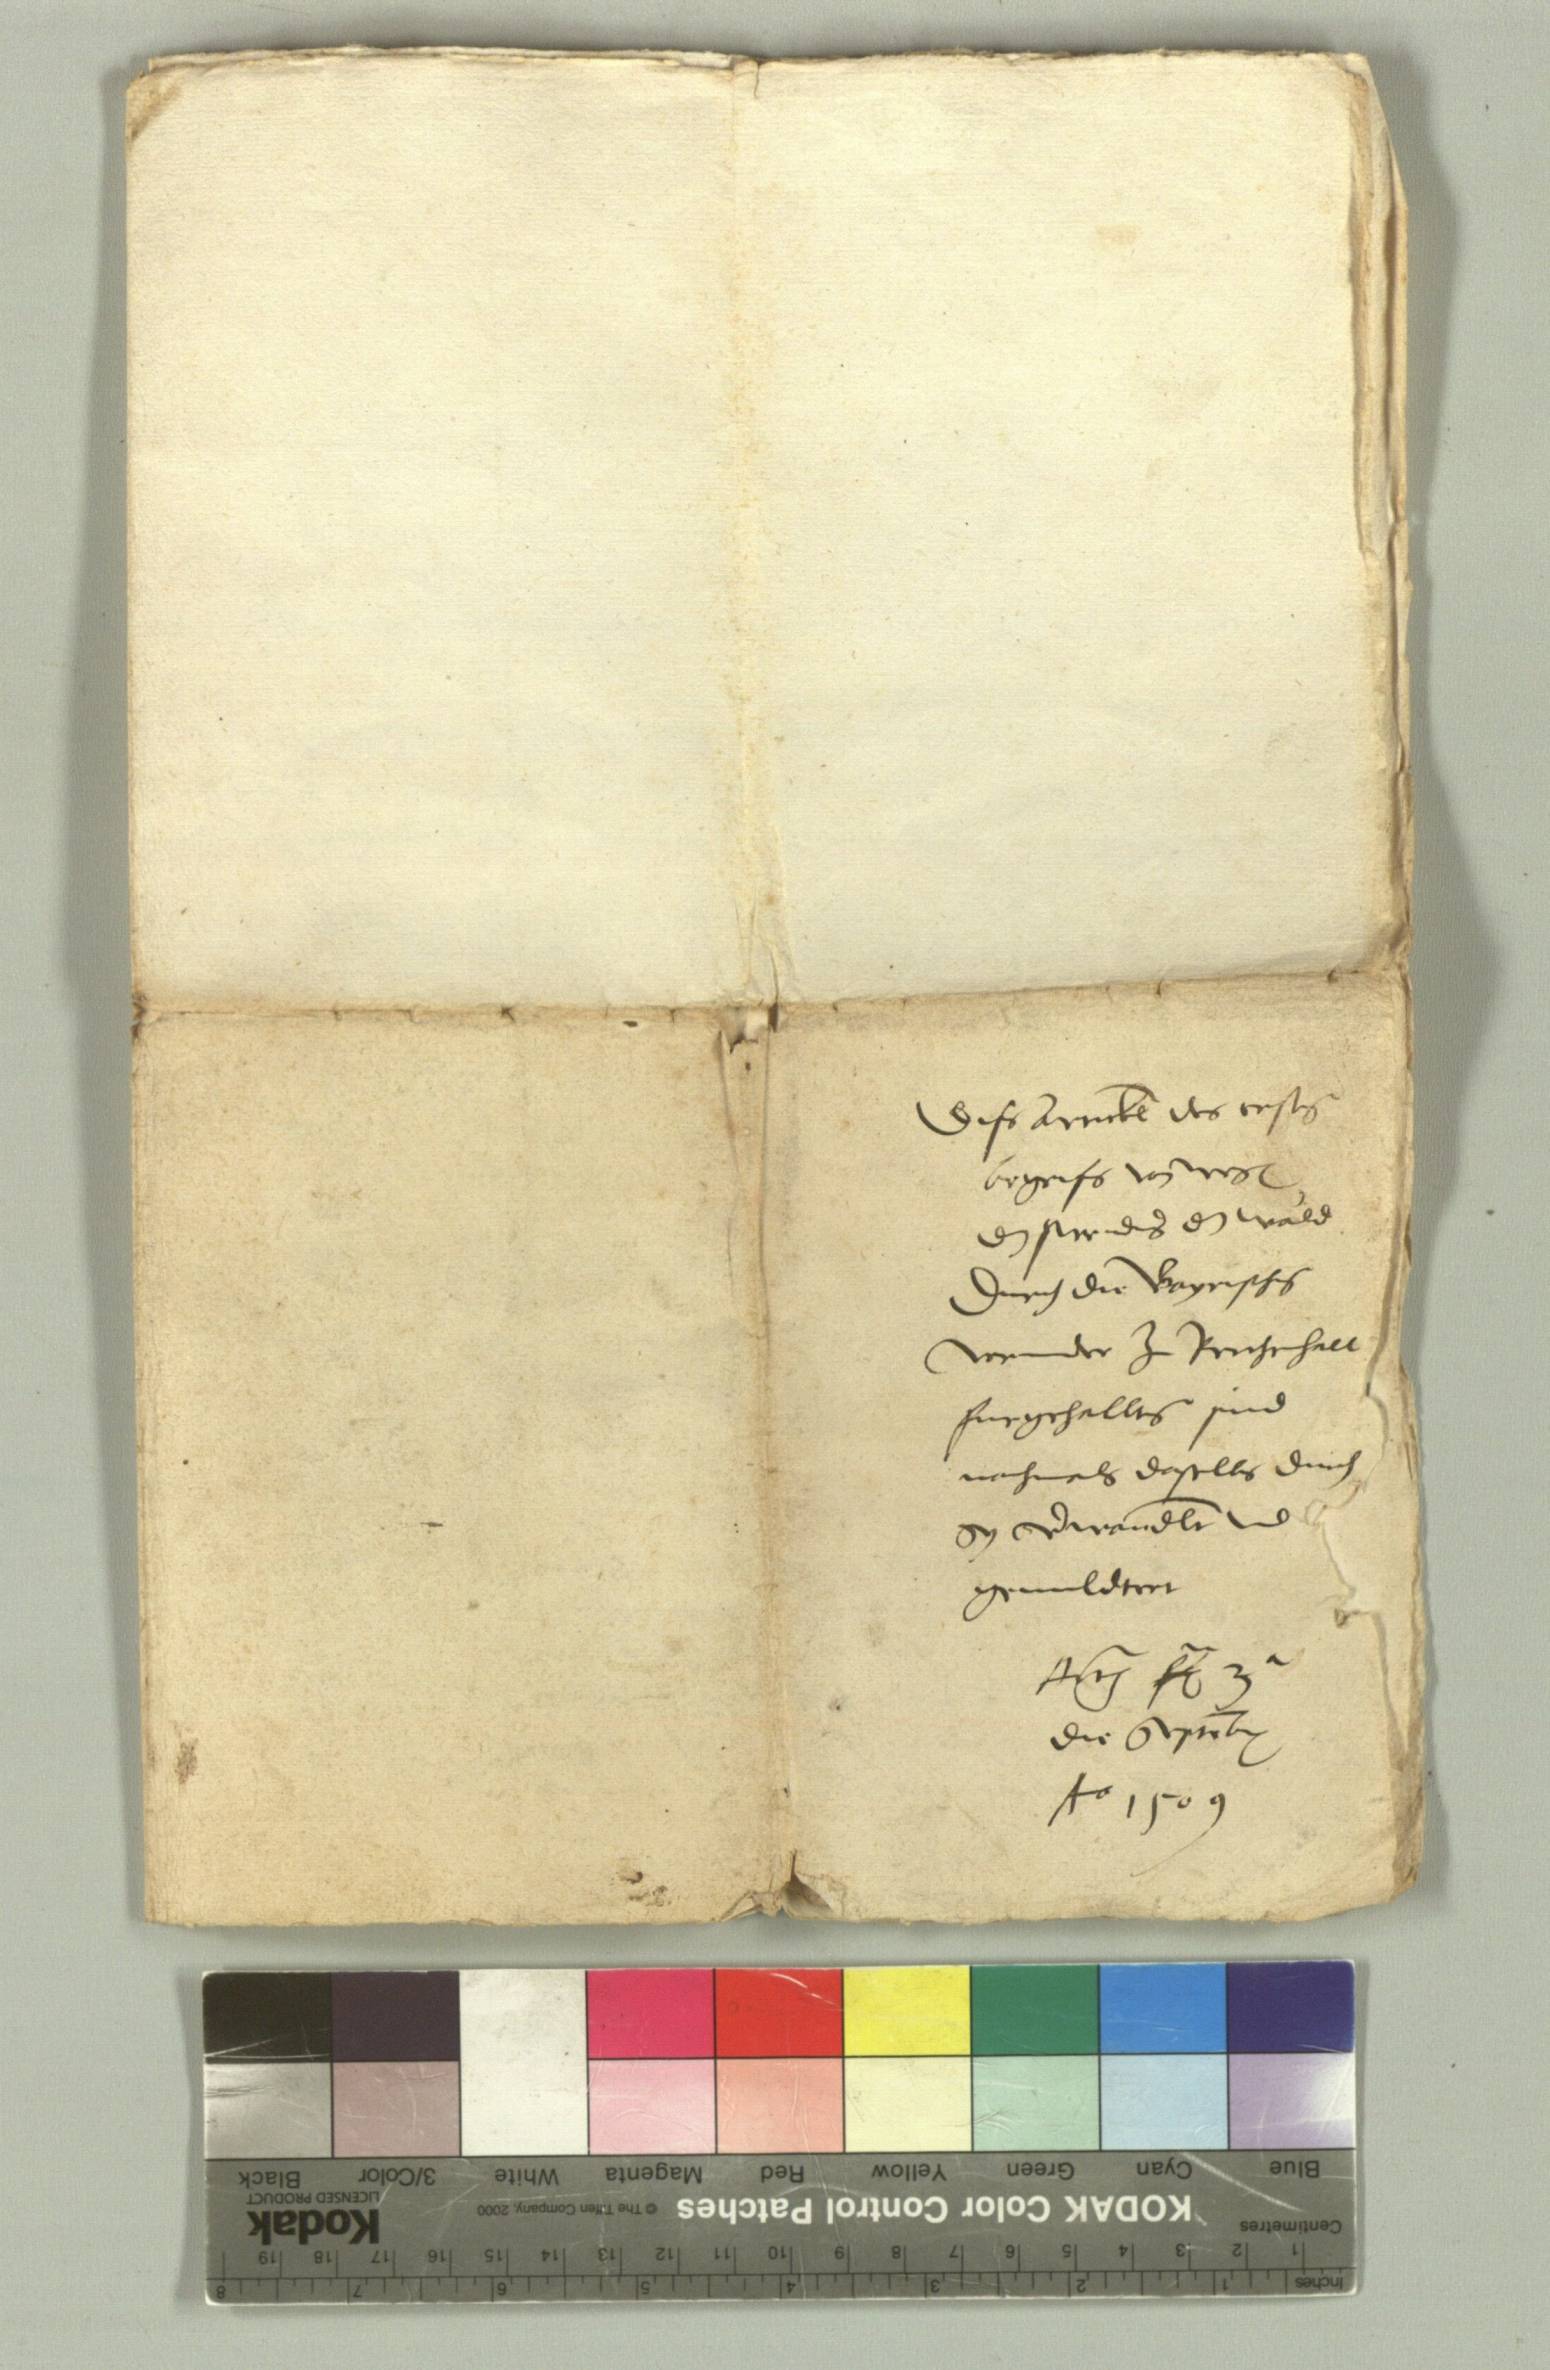 Diss Artickl des ersten
begriffs von weg
den
Durch die Bayrischn
zu Reichenhall
furgehallten sind
nachmals daselbs durch
Sy verwandlt und
gemildtert
Actum 3a
die Septembr
Ao 1509
Blue
Cyan
Green
Yellow
Red
Magenta
White
3/Color
Black
KODAK Color Control Patches
© The Tiffen Company, 2000
Kodak
LICENSED PRODUCT
Centimetres
1 2 3 4 5 6 7 8 9 10 11 12 13 14 15 16 17 18 19
Inches
1 2 3 4 5 6 7 8